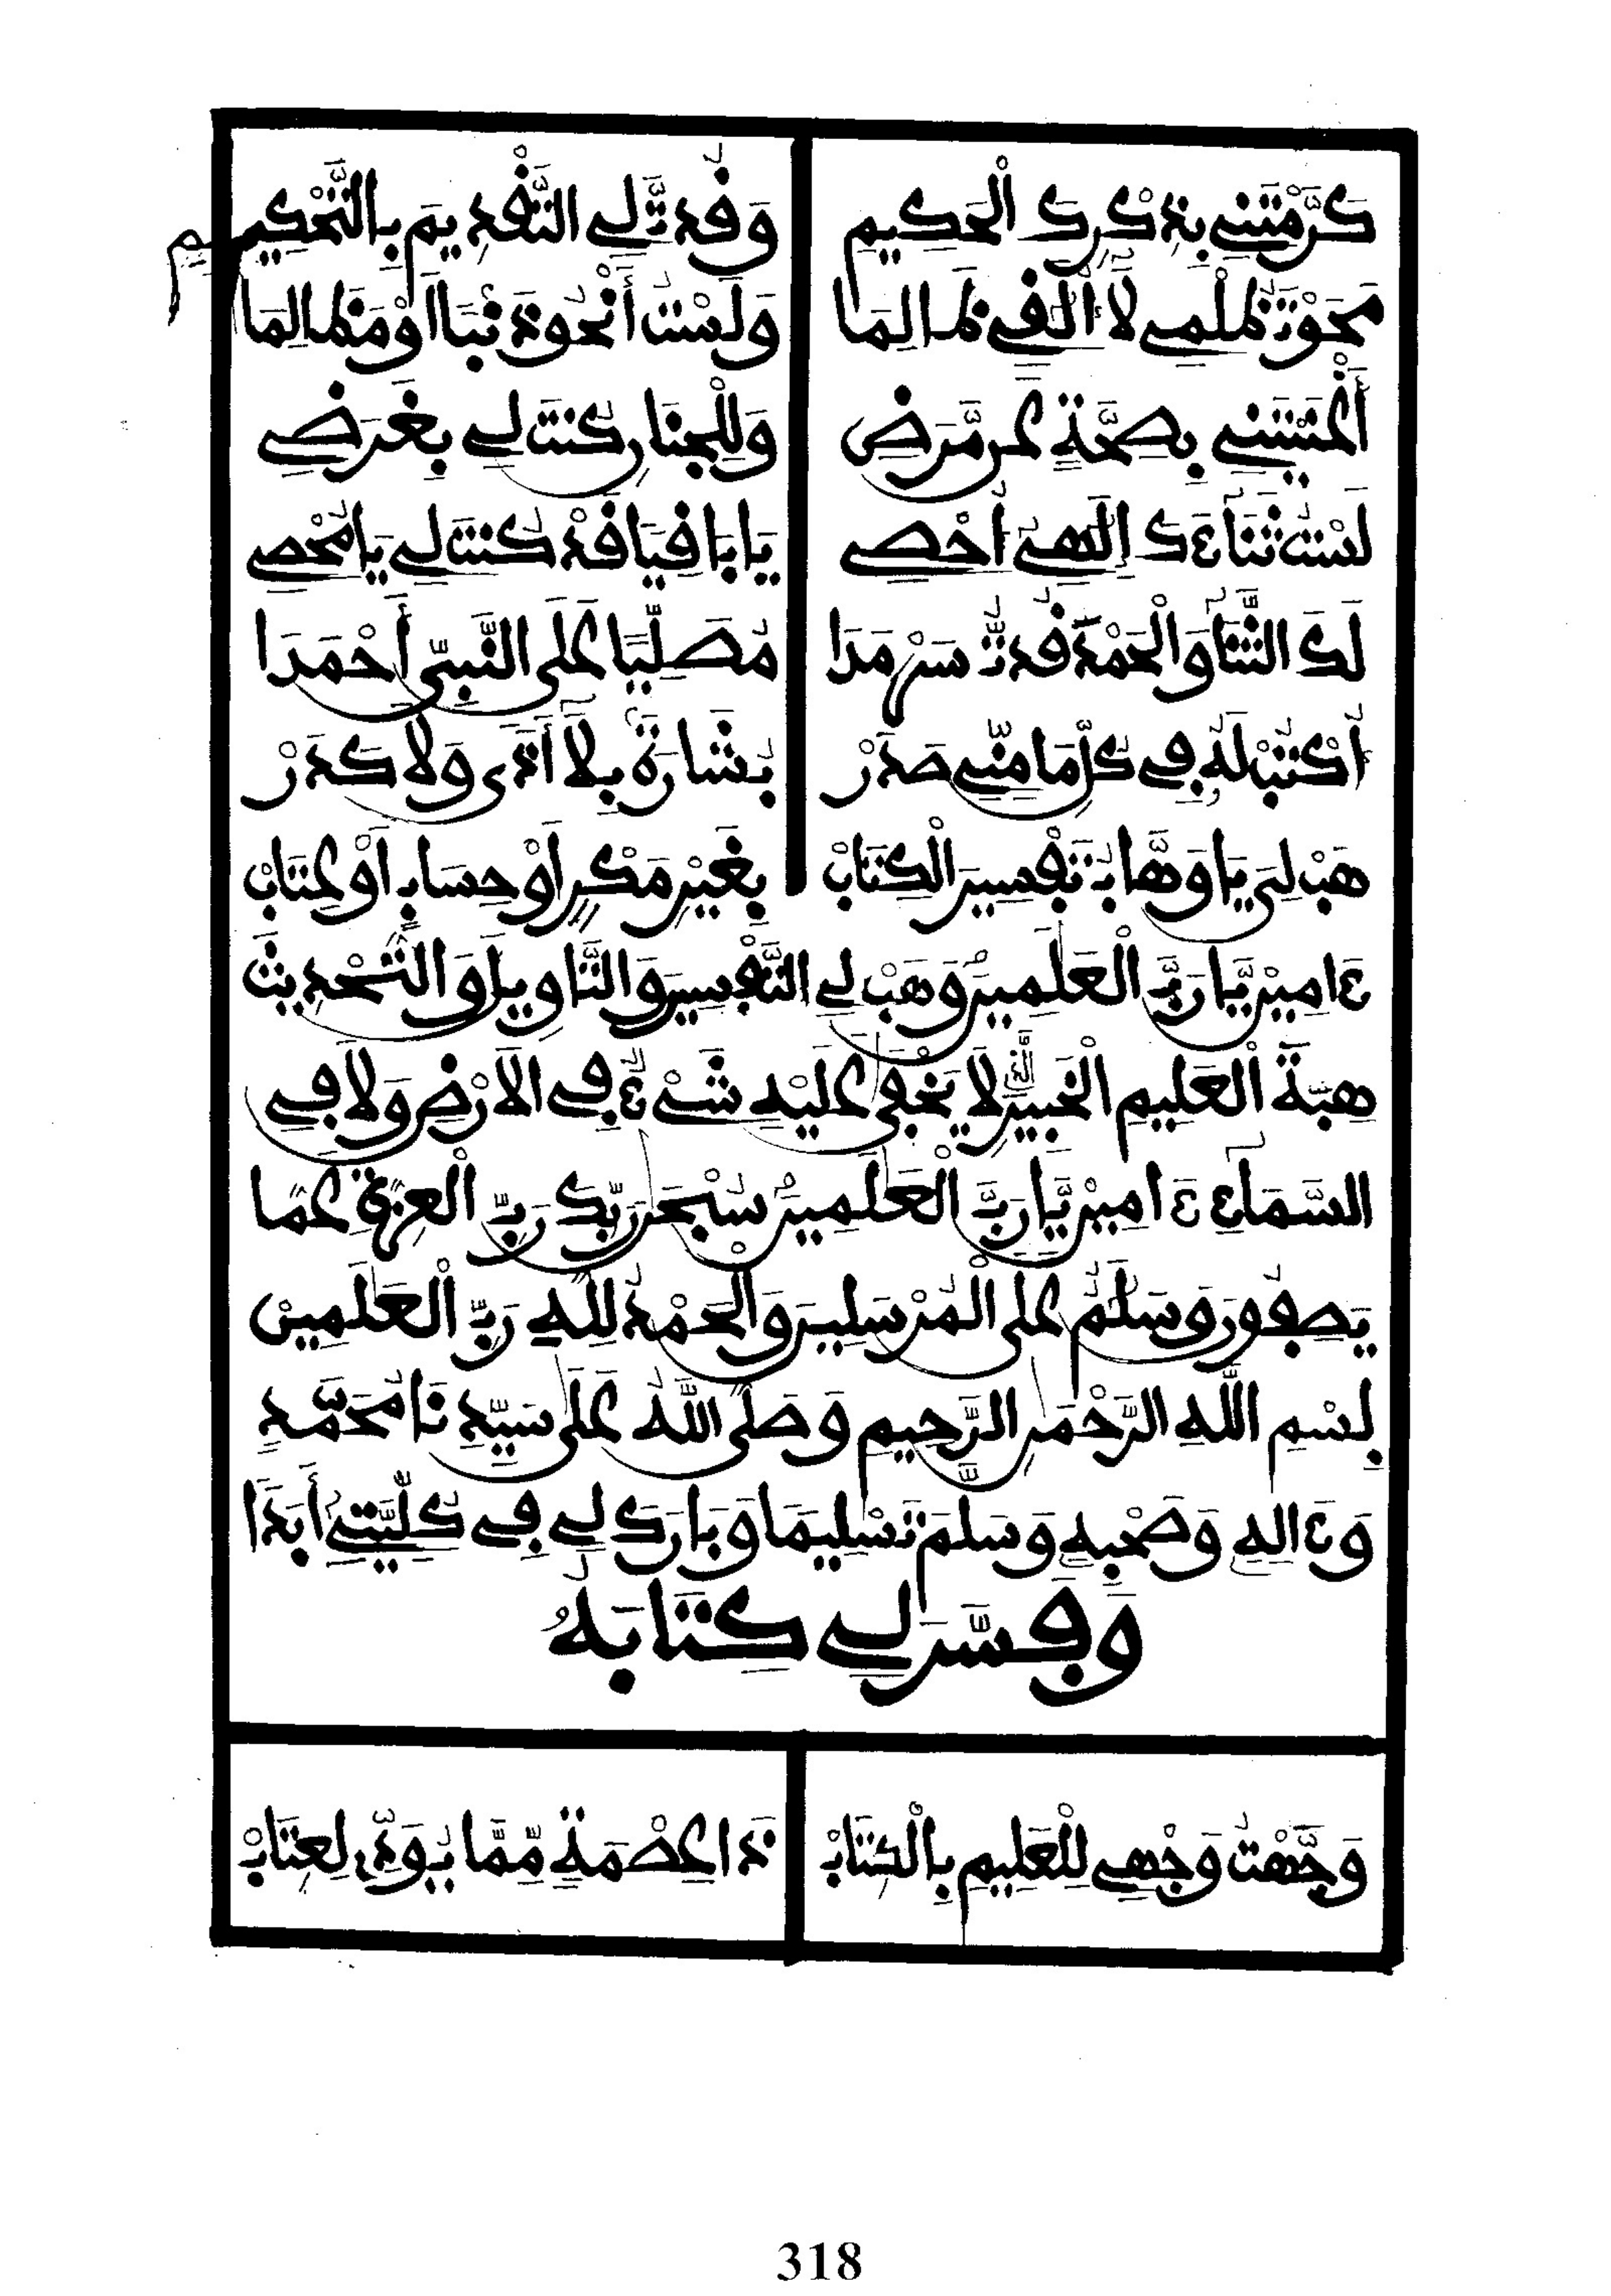 كَرَّمْتَنِي بِذِكْرِكَ الْحَكِيمِ وَقُدتَّ لِي التَّقْدِيمَ بِالتَّحْكِيمِ
مَحَوْتَ ظُلْمِي لَا أُلَاقِي ظَالِمَا وَلَسْتُ أَنْحُو ذَنْبًا اَوْ مَظَالِمَا
أَغْنَيْتَنِي بِصِحَّةٍ عَن مَّرَضِ وَلِلْجِنَانِ كُنتَ لِي بِغَرَضِي
لَسْتُ ثَنَاءَكَ إِلَهِي أُحْصِي يَا بَاقِيًا قَدْ كُنتَ لِي يَا مُحْصِي
لَكَ الثَّنَا وَالْحَمْدَ قُدتُّ سَرْمَدَا مُصَلِّيًا عَلَى النَّبِيِّ أَحْمَدَا
أُكْتُبْ لَهُ فِي كُلِّ مَا مِنِّي صَدَرْ بِشَارَةً بِلَا أَذًى وَلَا كَدَرْ
هَبْ لِيَ يَا وَهَّابُ تَفْسِيرَ الْكِتَابْ بِغَيْرِ مَكْرٍ اَوْ حِسَابٍ اَوْ عِتَابْ
ءَامِين يَّا رَبَّ الْعَلَمِينَ وَهَبْ لِي التَّفْسِيرَ وَالتَّاوِيلَ وَالتَّحْدِيثَ
هِبَةَ الْعَلِيمِ الْخَبِيرِ الَّذِي لَا يَخْفَى عَلَيْهِ شَيْءٌ فِي الَارْضِ وَلَا فِي
السَّمَاءِ ءَامِين يَّا رَبَّ الْعَلَمِينَ سُبْحَنَ رَبِّكَ رَبِّ الْعِزَّةِ عَمَّا
يَصِفُونَ وَسَلَمٌ عَلَى الْمُرْسَلِينَ وَالْحَمْدُ لِلَّهِ رَبِّ الْعَلَمِينْ
بِسْمِ اللَّهِ الرَّحْمَنِ الرَّحِيمِ وَصَلَّى اللَّهُ عَلَى سَيِّدِنَا مُحَمَّدٍ
وَءَالِهِ وَصَحْبِهِ وَسَلَّمَ تَسْلِيمًا وَبَارَكَ لِي فِي كُلِّيَّتِي أَبَدًا
وَفَسَّرَ لِي كِتَابَهُ
وَجَّهْتُ وَجْهِي لِلْعَلِيمِ بِالْكِتَابْ ذَا عِصْمَةٍ مِّمَّا يُؤَدِّي لِعِتَابْ
318